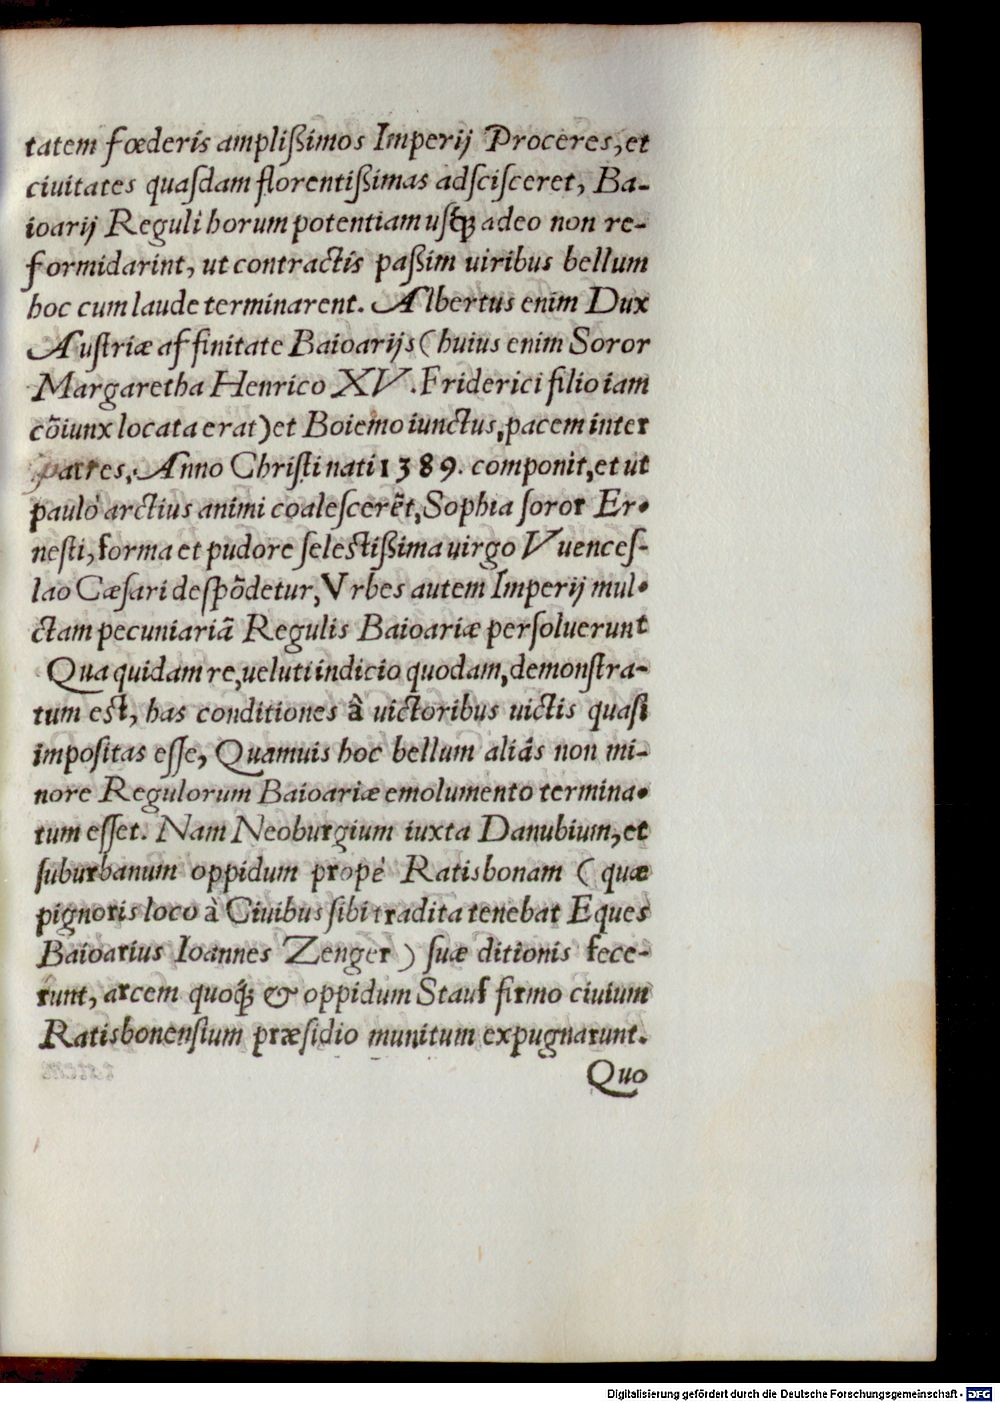 tatem fœderis amplißimos Imperij Proceres, et
ciuitates quasdam florentißimas adscisceret, Ba-
ioarij Reguli horum potentiam usq́ʒ adeo non re-
formidarint, ut contractis paßim uiribus bellum
hoc cum laude terminarent. Albertus enim Dux
Austriæ affinitate Baioarijs (huius enim Soror
Margaretha Henrico XV. Friderici filio iam
cōiunx locata erat) et Boiemo iunctus, pacem inter
partes, Anno Christi nati 1389. componit, et ut
paulò arctius animi coalescerēt, Sophia soror Er-
nesti, forma et pudore selectißima uirgo Vuences-
lao Cæsari despōdetur, Vrbes autem Imperij mul-
ctam pecuniariā Regulis Baioariæ persoluerunt
Qua quidam re, ueluti indicio quodam, demonstra-
tum est, has conditiones â uictoribus uictis quasi
impositas esse, Quamuis hoc bellum aliâs non mi-
nore Regulorum Baioariæ emolumento termina-
tum esset. Nam Neoburgium iuxta Danubium, et
suburbanum oppidum propè Ratisbonam (quæ
pignoris loco à Ciuibus sibi tradita tenebat Eques
Baioarius Ioannes Zenger) suæ ditionis fece-
runt, arcem quoq́ʒ & oppidum Stauf firmo ciuium
Ratisbonensium præsidio munitum expugnarunt.
Quo
Digitalisierung gefördert durch die Deutsche Forschungsgemeinschaft - DFG